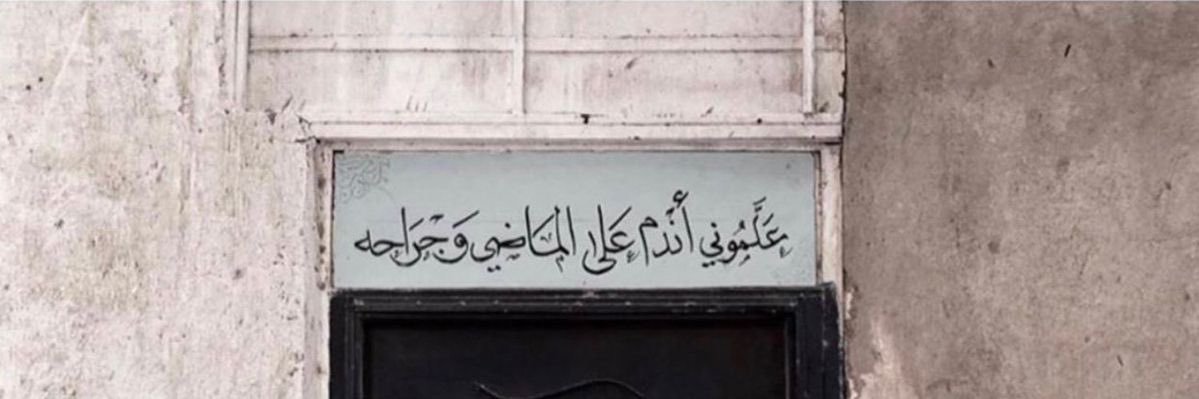 عَلَّمُوني أنْدم عَلى المَاضي وَجرَاحه